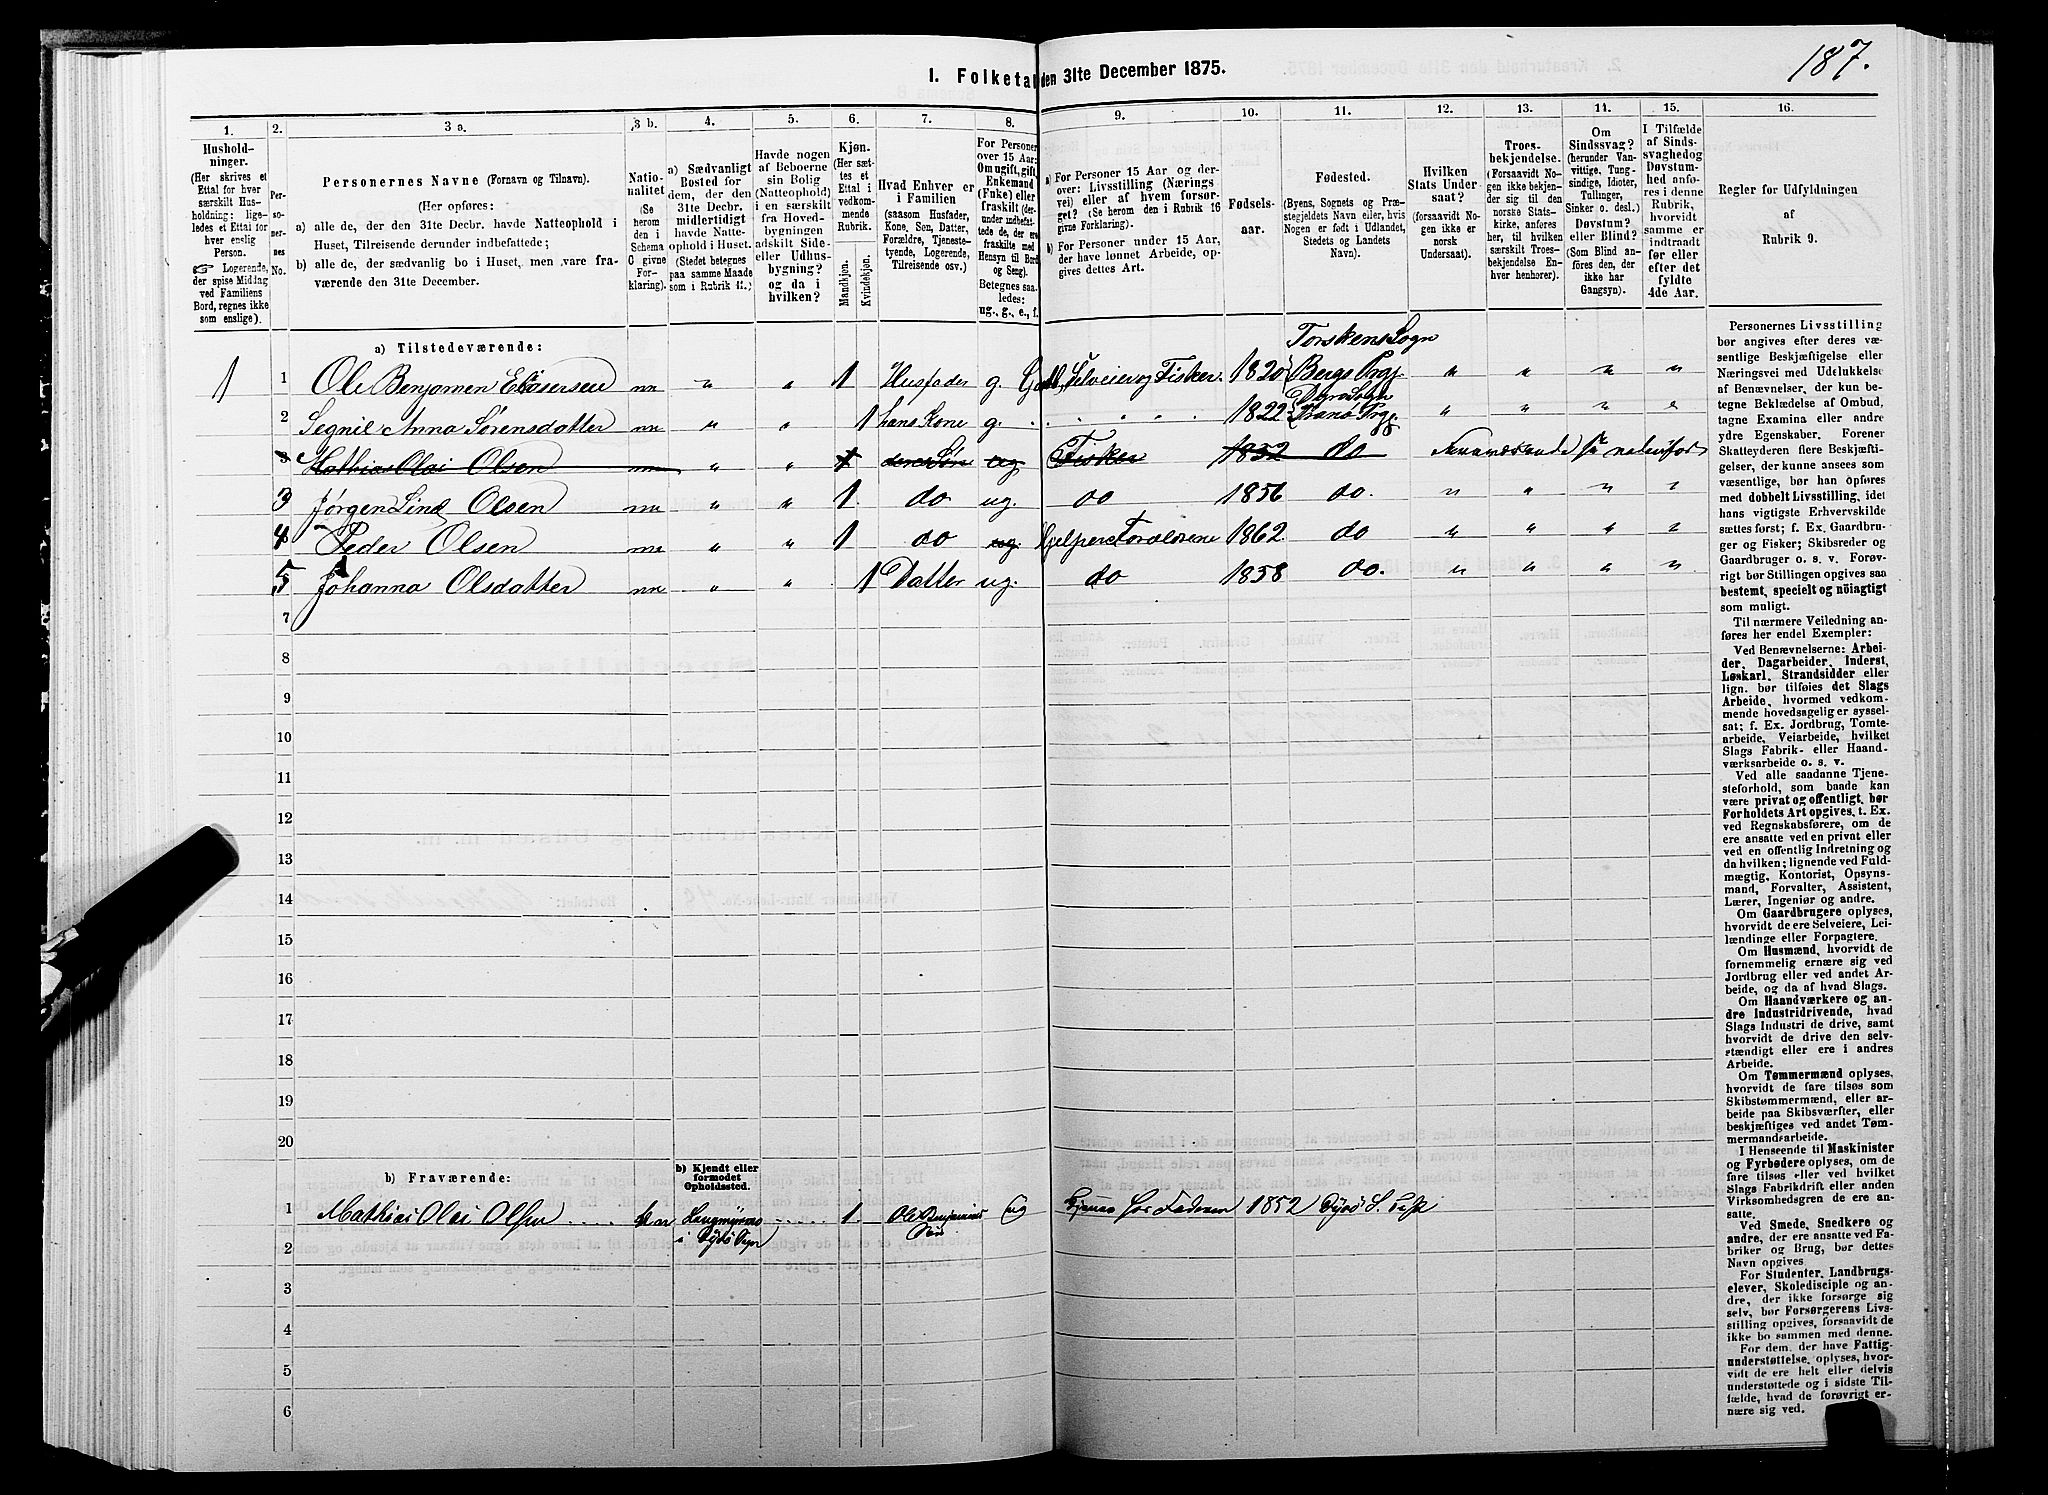 187.
I. Folketal den 31te December 1875.
1. 2. 3 a. 3 b. 4. 5. 6. 7. 8. 9. 10. 11. 12. 13. 14. 15. 16.
Hushold-
ninger.
(Her skrives et
Ettal for hver
særskilt Hus-
holdning; lige-
ledes et Ettal for
hver enslig
Person.
☞ Logerende,
der spise Middag
ved Familiens
Bord, regnes ikke
som enslige).
Per-
so-
ner-
nes
No.
Personernes Navne (Fornavn og Tilnavn).
(Her opføres:
a) alle de, der den 31te Decbr. havde Natteophold i
Huset, Tilreisende derunder indbefattede;
b) alle de, der sædvanlig bo i Huset, men vare fra-
værende den 31te December.
Natio-
nalitet
(Se
herom
den i
Schema
C givne
For-
klaring).
a) Sædvanligt
Bosted for
dem, der den
31te Decbr.
midlertidigt
havde Natte-
ophold i Huset.
(Stedet betegnes
paa samme Maade
som i Rubrik 11.)
Havde nogen
af Beboerne
sin Bolig
(Natteophold)
i en særskilt
fra Hoved-
bygningen
adskilt Side-
eller Udhus-
bygning?
og da i
hvilken?
Kjøn.
(Her sæt-
tes et
Ettal i
vedkom-
mende
Rubrik.
Mandkjøn.
Kvindekjøn.
Hvad Enhver er
i Familien
(saasom Husfader,
Kone, Søn, Datter,
Forældre, Tjeneste-
tyende, Logerende,
Tilreisende osv.)
For Personer
over 15 Aar:
Om ugift, gift,
Enkemand
(Enke) eller
fraskilt (der-
under indbefat-
tede de, der ere
fraskilte med
Hensyn til Bord
og Seng).
Betegnes saa-
ledes:
ug., g., e., f.
a) For Personer 15 Aar og der-
over: Livsstilling (Nærings
vei) eller af hvem forsør-
get? (Se herom den i Rubrik 16
givne Forklaring).
b) For Personer under 15 Aar,
der have lønnet Arbeide, op-
gives dettes Art.
Fødsels-
aar.
Fødested.
(Byens, Sognets og Præ-
stegjeldets Navn eller, hvis
Nogen er født i Udlandet,
Stedets og Landets
Navn).
Hvilken
Stats Under
saat?
(forsaavidt No-
gen ikke er
norsk
Undersaat).
Troes-
bekjendelse.
(Forsaavidt No-
gen ikke bekjen-
der sig til den
norske Stats-
kirke, anføres
her, til hvilken
særskilt Troes-
bekjendelse En-
hver henhører).
Om
Sindssvag?
(herunder Van-
vittige, Tung-
sindige, Idioter,
Tullinger,
Sinker o. desl.)
Døvstum?
eller Blind?
(Som Blind an-
føres den, der
ikke har
Gangsyn).
I Tilfælde
af Sinds-
svaghed og
Døvstum-
hed anfø-
res i denne
Rubrik,
hvorvidt
samme er
indtraadt
før eller
efter det
fyldte
4de Aar.
Regler for Udfyldningen
af
Rubrik 9.
a) Tilstedeværende:
Torskens Sogn
1 1 Ole Benjamen nn „ „ 1 Husfader g. Selveier og Fisker. 1820 Bergs Prgj „ „ „ „
Dyrø Sogn
2 Anna Sørensdatter nn „ „ 1 hans Kone g. „ „ „ „ 1822 Tranø Prgj. „ „ „ „
3 Mathias Olai Olsen nn „ „ 1 deres Søn ug Fisker 1852 do
3 Jørgen Lind Olsen nn „ „ 1 do ug. do 1856 do. „ „ „ „
4 Peder Olsen nn „ „ 1 do ug. Hjelper Forældrene 1862 do „ „ „ „
5 Johanna Olsdatter nn „ „ 1 Datter ug. do 1858 do. „ „ „ „
7
8
9
10
11
12
13
14
15
16
17
18
19
20
b) Fraværende:
b) Kjendt eller
formodet
Opholdssted.
1 Mathias Olai Olsen 1. Ole Benjamins Søn ug Tjener for Faderen 1852 Dyrø S.
2
3
4
5
6
Personernes Livsstilling
bør angives efter deres væ-
sentlige Beskjæftigelse eller
Næringsvei med Udelukkelse
af Benævnelser, der kun be-
tegne Beklædelse af Ombud,
tagne Examina eller andre
ydre Egenskaber. Forener
Skatteyderen flere Beskjæfti-
gelser, der kunne ansees som
væsentlige, bør han opføres
med dobbelt Livsstilling, idet
hans vigtigste Erhvervskilde
sættes først; f. Ex. Gaardbru-
ger og Fisker; Skibsreder og
Gaardbruger o. s. v. Forøv-
rigt bør Stillingen opgives saa
bestemt, specielt og nöiagtigt
som muligt.
Til nærmere Veiledning an-
føres her endel Exempler:
Ved Benævnelserne: Arbei-
der, Dagarbeider, Inderst,
Løskarl, Strandsidder eller
lign. bør tilføies det Slags
Arbeide, hvormed vedkom-
mende hovedsagelig er syssel-
sat; f. Ex. Jordbrug, Tomte-
arbeide, Veiarbeide, hvilket
Slags Fabrik- eller Haand-
værksarbeide o. s. v.
Ved alle saadanne Tjene-
steforhold, som baade kan
være privat og offentligt, bør
Forholdets Art opgives, t. Ex.
ved Regnskabsførere, om de
ere ansatte ved en privat eller
ved en offentlig Indretning og
da hvilken; lignende ved Fuld-
mægtig, Kontorist, Opsyns-
mand, Forvalter, Assistent,
Lærer, Ingeniør og andre.
Om Gaardbrugere oplyses,
hvorvidt de ere Selveiere, Lei-
lændinge eller Forpagtere.
Om Husmænd, hvorvidt de
fornemmelig ernære sig ved
Jordbrug eller ved andet Ar-
beide, og da af hvad Slags.
Om Haandværkere og an-
dre Industridrivende, hvad
Slags Industri de drive, samt
hvorvidt de drive den selv-
stændigt eller ere i andres
Arbeide.
Om Tømmermænd oplyses,
hvorvidt de fare tilsøs som
Skibstømmermænd, eller ar-
beide paa Skibsværfter, eller
beskjæftiges ved andet Tøm-
mermandsarbeide.
I Henseende til Maskinister
og Fyrbødere oplyses, om de
fare tilsøs eller ved hvilket
Slags Fabrikdrift eller anden
Virksomhedsgren de ere an-
satte.
Ved Smede, Snedkere og
andre, der ere ansatte ved Fa-
briker og Brug, bør dettes
Navn opgives.
For Studenter, Landbrugs-
elever, Skoledisciple og an-
dre, der ikke forsørge sig
selv, bør Forsørgerens Livs-
stilling opgives, forsaavidt de
ikke bo sammen med denne.
For dem, der have Fattig-
understøttelse, oplyses, hvor-
vidt de ere helt eller delvis
understøttede og i sidste Til-
fælde, hvad de forøvrigt er-
nære sig ved.